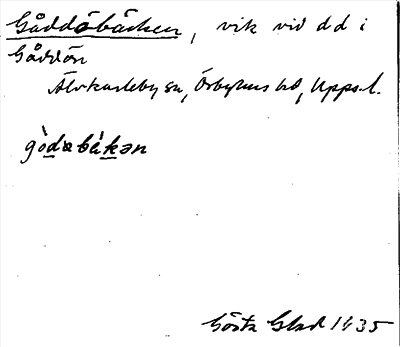 Gåddöbäcken, vik vid d d i
Gåddön
Älvkarleby sn, Örbyhus hd, Upps. l.
gòdabä́kən
Gösta Glad 1935